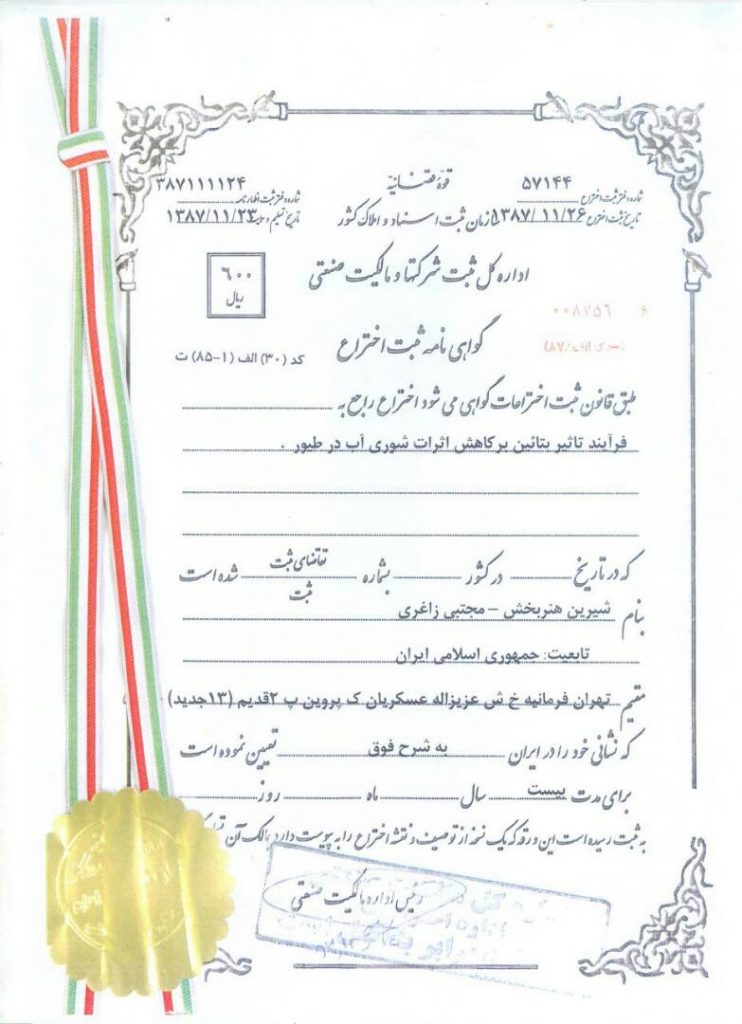 قوه قضائیه
۵۷۱۴۴
شماره دفتر ثبت اختراع
۳۸۷۱۱۱۱۲۴
شماره دفتر ثبت اظهارنامه
تاریخ ثبت اختراع ۱۳۸۷/۱۱/۲۶
سازمان ثبت اسناد و املاک کشور
تاریخ تسلیم و ۱۳۸۷/۱۱/۲۳
اداره کل ثبت شرکتها و مالکیت صنعتی
۶۰۰
ریال
۰۰۸۷۵۶
گواهی نامه ثبت اختراع
کد (۳۰) الف (۱-۸۵) ت
طبق قانون ثبت اختراعات گواهی می شود اختراع راجع به
فرآیند تاثیر بتائین برکاهش اثرات شوری آب در طیور .
که در تاریخ در کشور بشماره تقاضای ثبت شده است
ثبت
بنام شیرین هنربخش – مجتبی زاغری
تابعیت: جمهوری اسلامی ایران
مقیم تهران فرمانیه خ ش عزیزاله عسکریان ک پروین پ ۲قدیم (۱۳جدید)
که نشانی خود را در ایران به شرح فوق تعیین نموده است
برای مدت بیست سال ماه روز
به ثبت رسیده است این ورقه که یک نسخه از توصیف و نقشه اختراع را به پیوست دارد بمالک آن
رئیس اداره مالکیت صنعتی